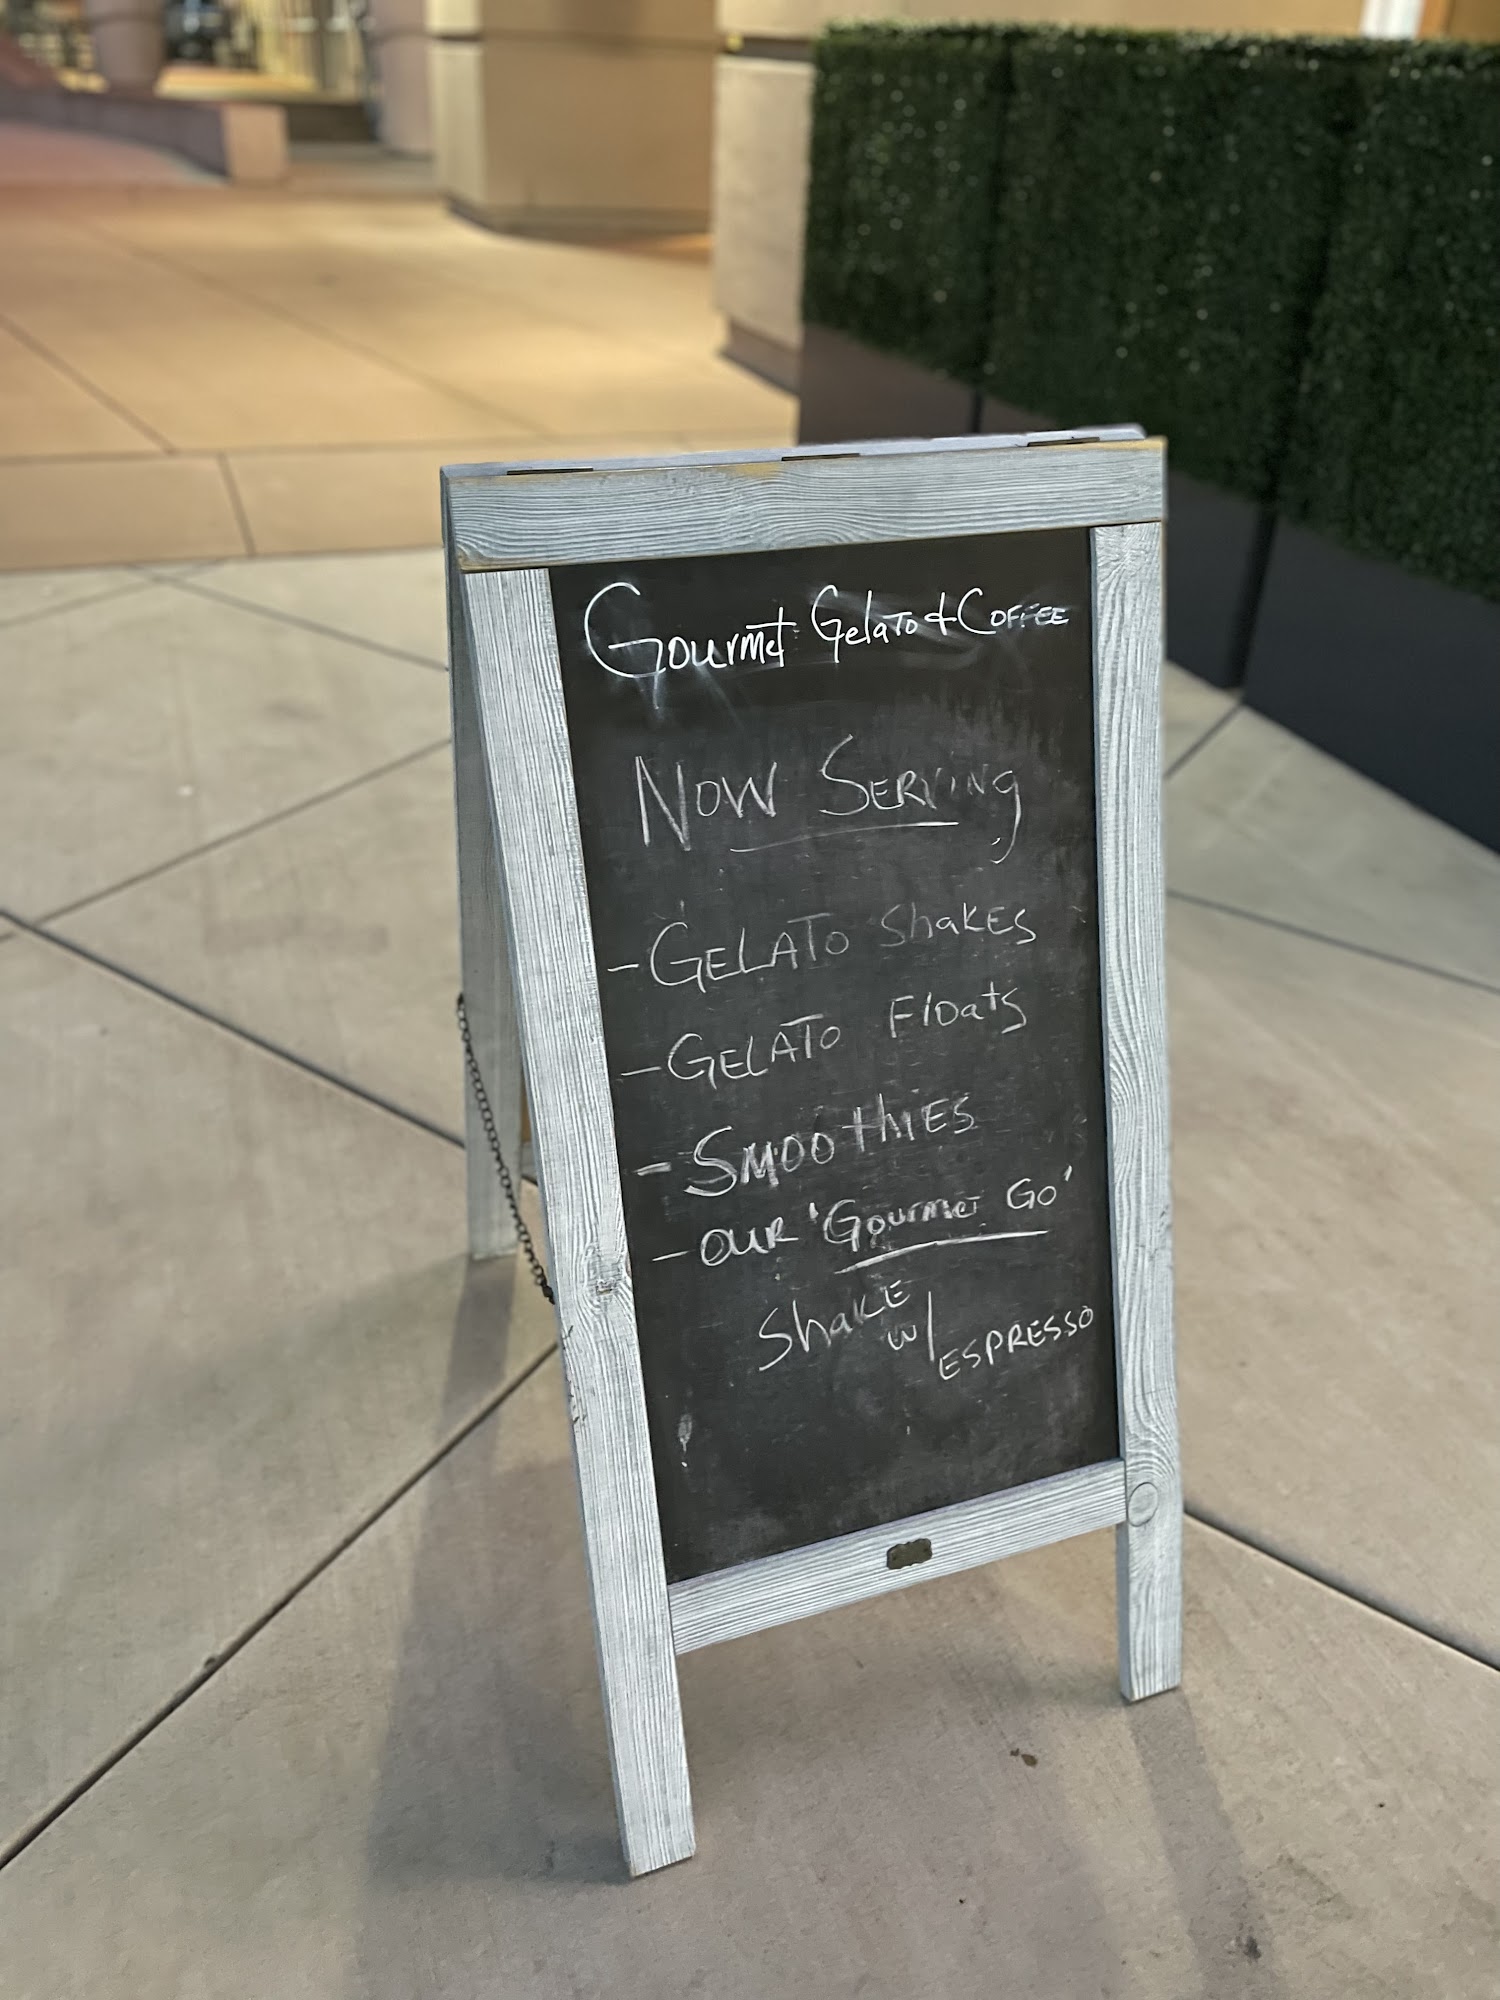 Gourmet Gelato & COFFEE
NOW SERVING
- GELATO ShAKES
- GELATO Floats
- SMOOthIES
- OUR 'Gourmet GO'
ShaKE
w/ ESPRESSO